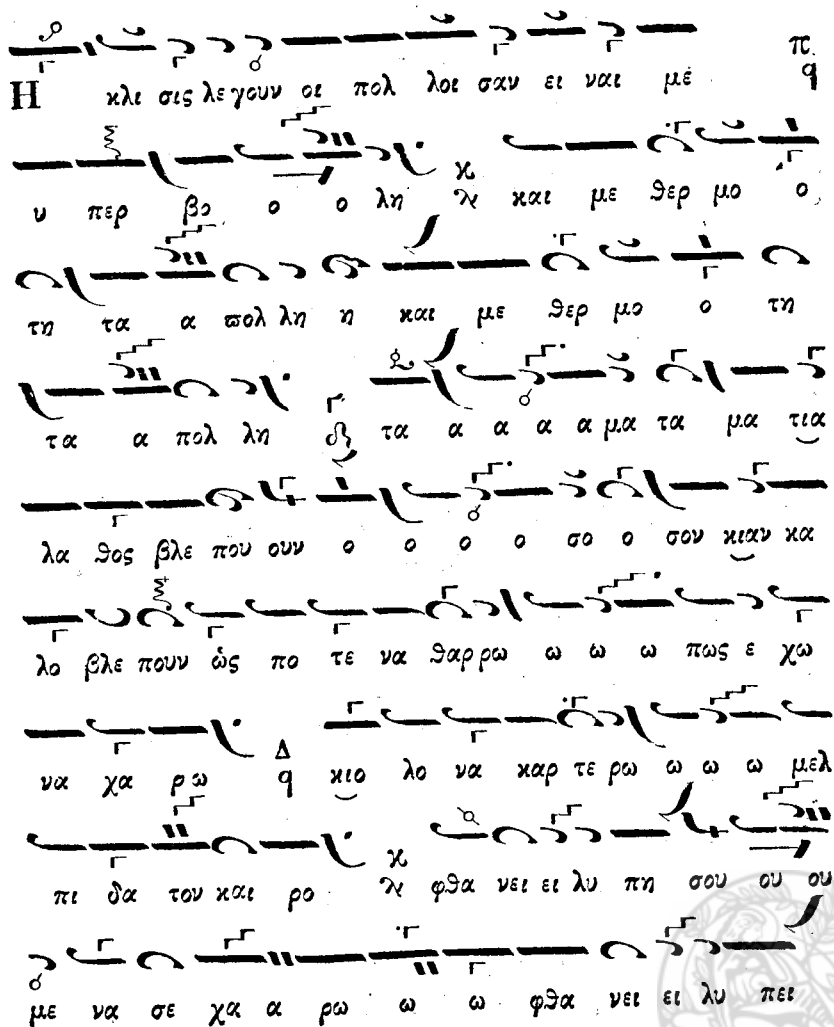 π.
Η κλι σις λε γουν οι πολ λοι σαν ει ναι μέ q
υ περ βο ο ο λη ϗ και με θερ μο ο
τη τα α ϖολ λη η και με θερ μο ο τη
τα α πολ λη τα α α α α μα τα μα τια
λα θος βλε που ουν ο ο ο ο σο ο σον κιαν κα
λο βλε πουν ὡς πο τε να θαρ ρω ω ω ω πως ε χω
να χα ρω Δ q κιο λο να καρ τε ρω ω ω ω μελ
πι δα τον και ρο ϗ φθα νει ει λυ πη σου ου ου
με να σε χα α ρω ω ω φθα νει ει λυ πει